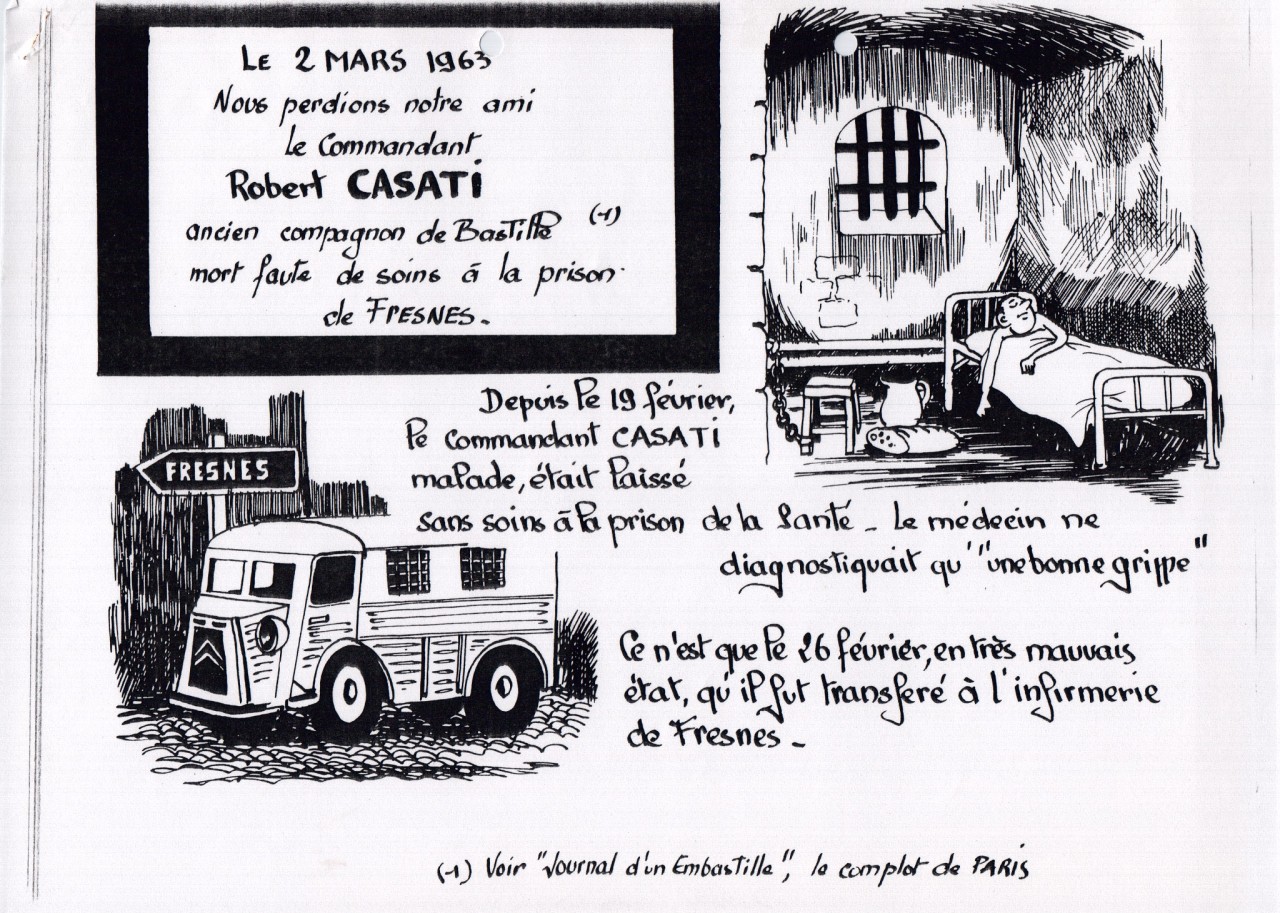 LE 2 MARS 1963
Nous perdions notre ami
le Commandant
Robert CASATI
ancien compagnon de Bastille (1)
mort faute de soins à la prison
de FRESNES.
Depuis le 19 février,
le commandant CASATI
malade, était laissé
sans soins à la prison de la Santé - Le médecin ne
diagnostiquait qu'"une bonne grippe"
FRESNES
Ce n'est que le 26 février, en très mauvais
état, qu'il fut transferé à l'infirmerie
de Fresnes -
(1) Voir "Journal d'un Embastille", le complot de PARIS